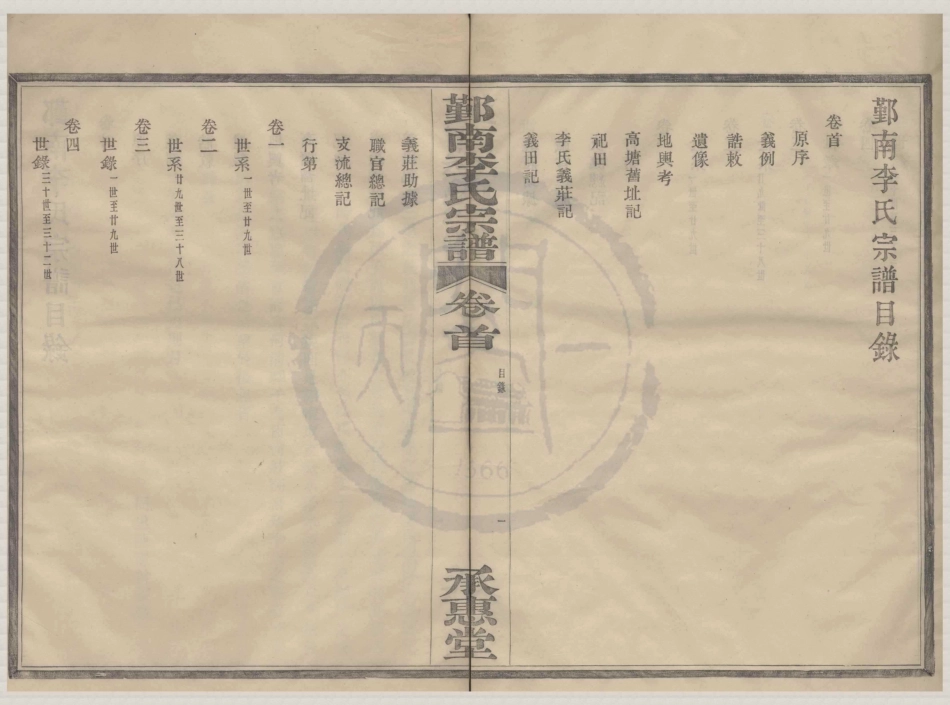 鄞南李氏宗譜目錄
卷首
原序
義例
誥敕
遺像
地輿考
高塘舊址記
祀田
李氏義莊記
義田記
鄞南李氏宗譜 卷首 目錄 一 承惠堂
義莊助據
職官總記
支流總記
行第
卷一
世系一世至廿九世
卷二
世系廿九世至三十八世
卷三
世錄一世至廿九世
卷四
世錄三十世至三十二世